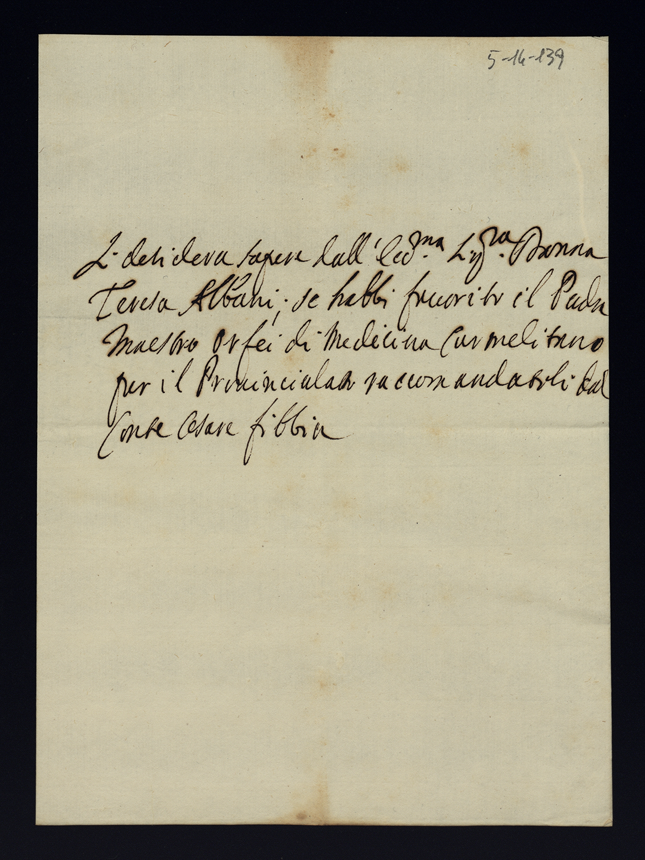 5-14-139
Si desidera sapere dall' Ecc.ma Sig.ra Donna
Teresa Albani, se habbi fauorito il Padre
Maestro Orfei di Medicina Carmelitano
per il Prouincialato raccomandatoli dal
Conte Cesare fibbia